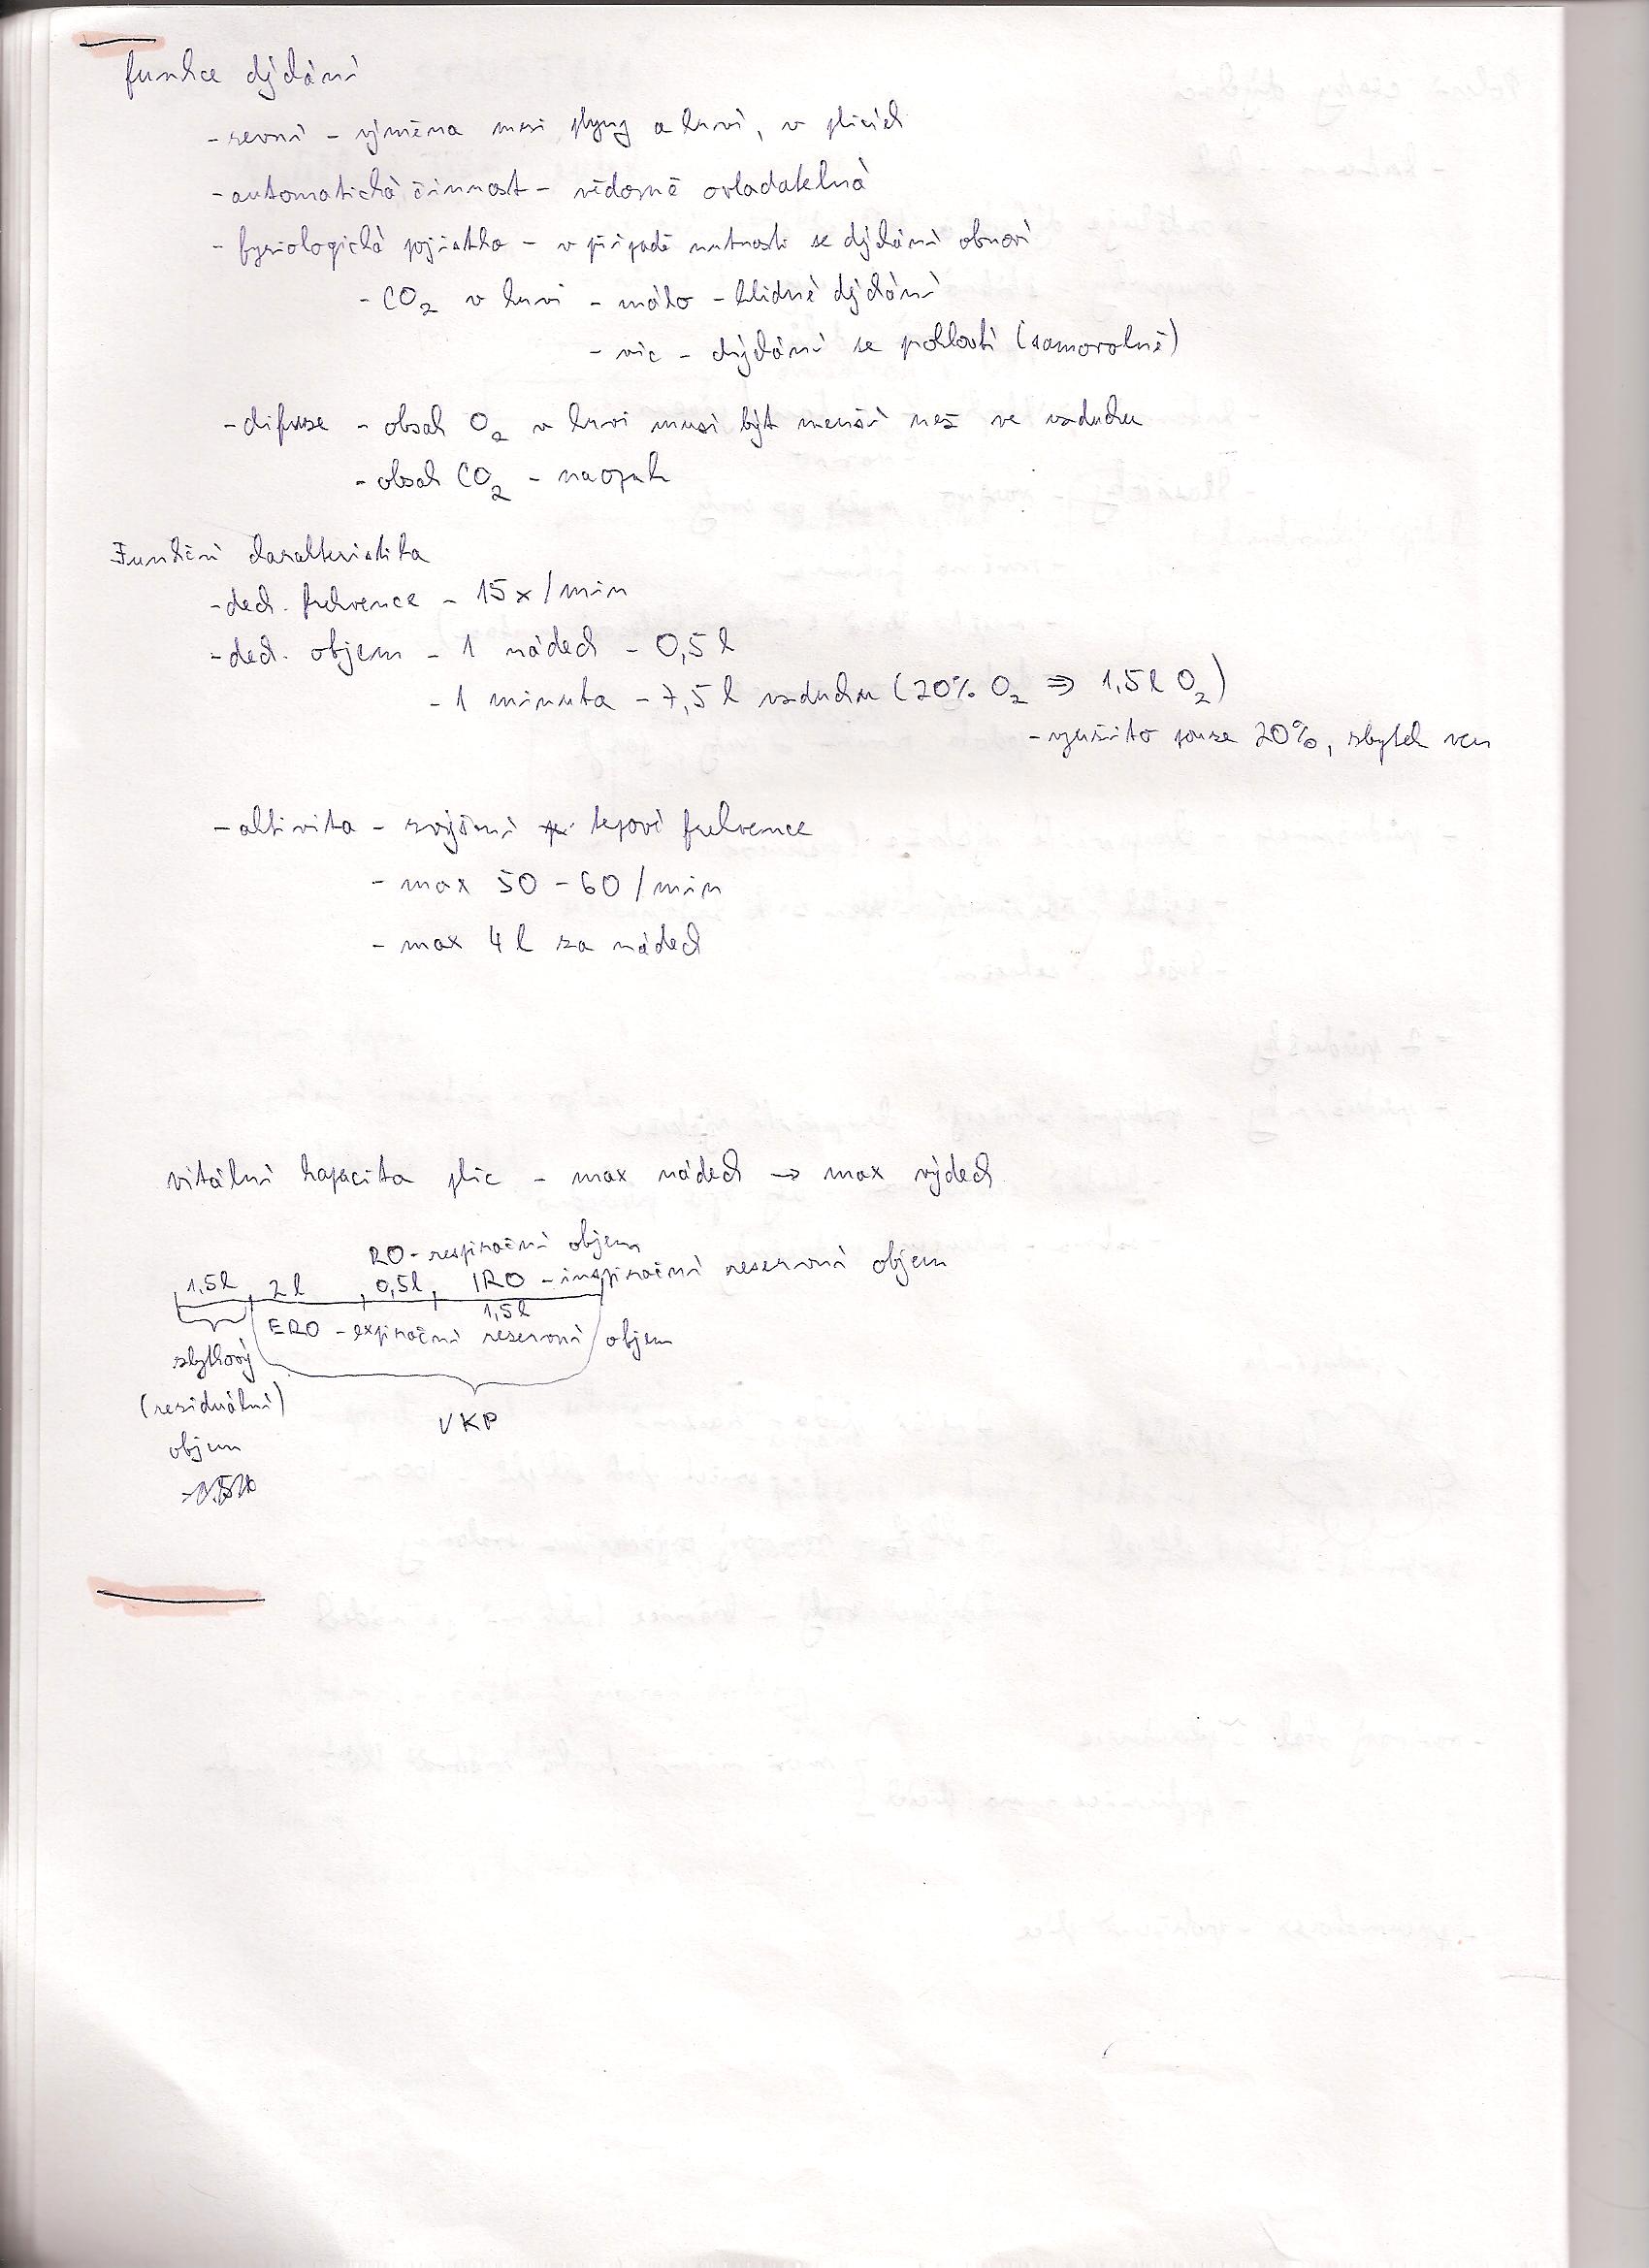 funkce dýchání
- zevní - výměna mezi plyny a krví, v plicích
- automatická činnost - vědomě ovladatelná
- fyziologická pojistka - v případě nutnosti se dýchání obnoví
- CO2 v krvi - málo - klidné dýchání
- víc - dýchání se prohloubí (samovolně)
- difuze - obsah O2 v krvi musí být menší než ve vzduchu
- obsah CO2 - naopak
Funkční charakteristika
- dech. frekvence - 15x/min
- dech. objem - 1 nádech - 0,5 l
- 1 minuta - 7,5 l vzduchu (20% O2 ⇒ 1,5 l O2)
- využito pouze 20%, zbytek ven
- aktivita - zvýšení tepové frekvence
- max 50 - 60/min
- max 4 l za nádech
vitální kapacita plic - max nádech → max výdech
RO - respirační objem
1,5l 2l 0,5l IRO - inspirační rezervní objem
1,5l
ERO - expirační rezervní objem
zbytkový
(reziduální)
objem
VKP